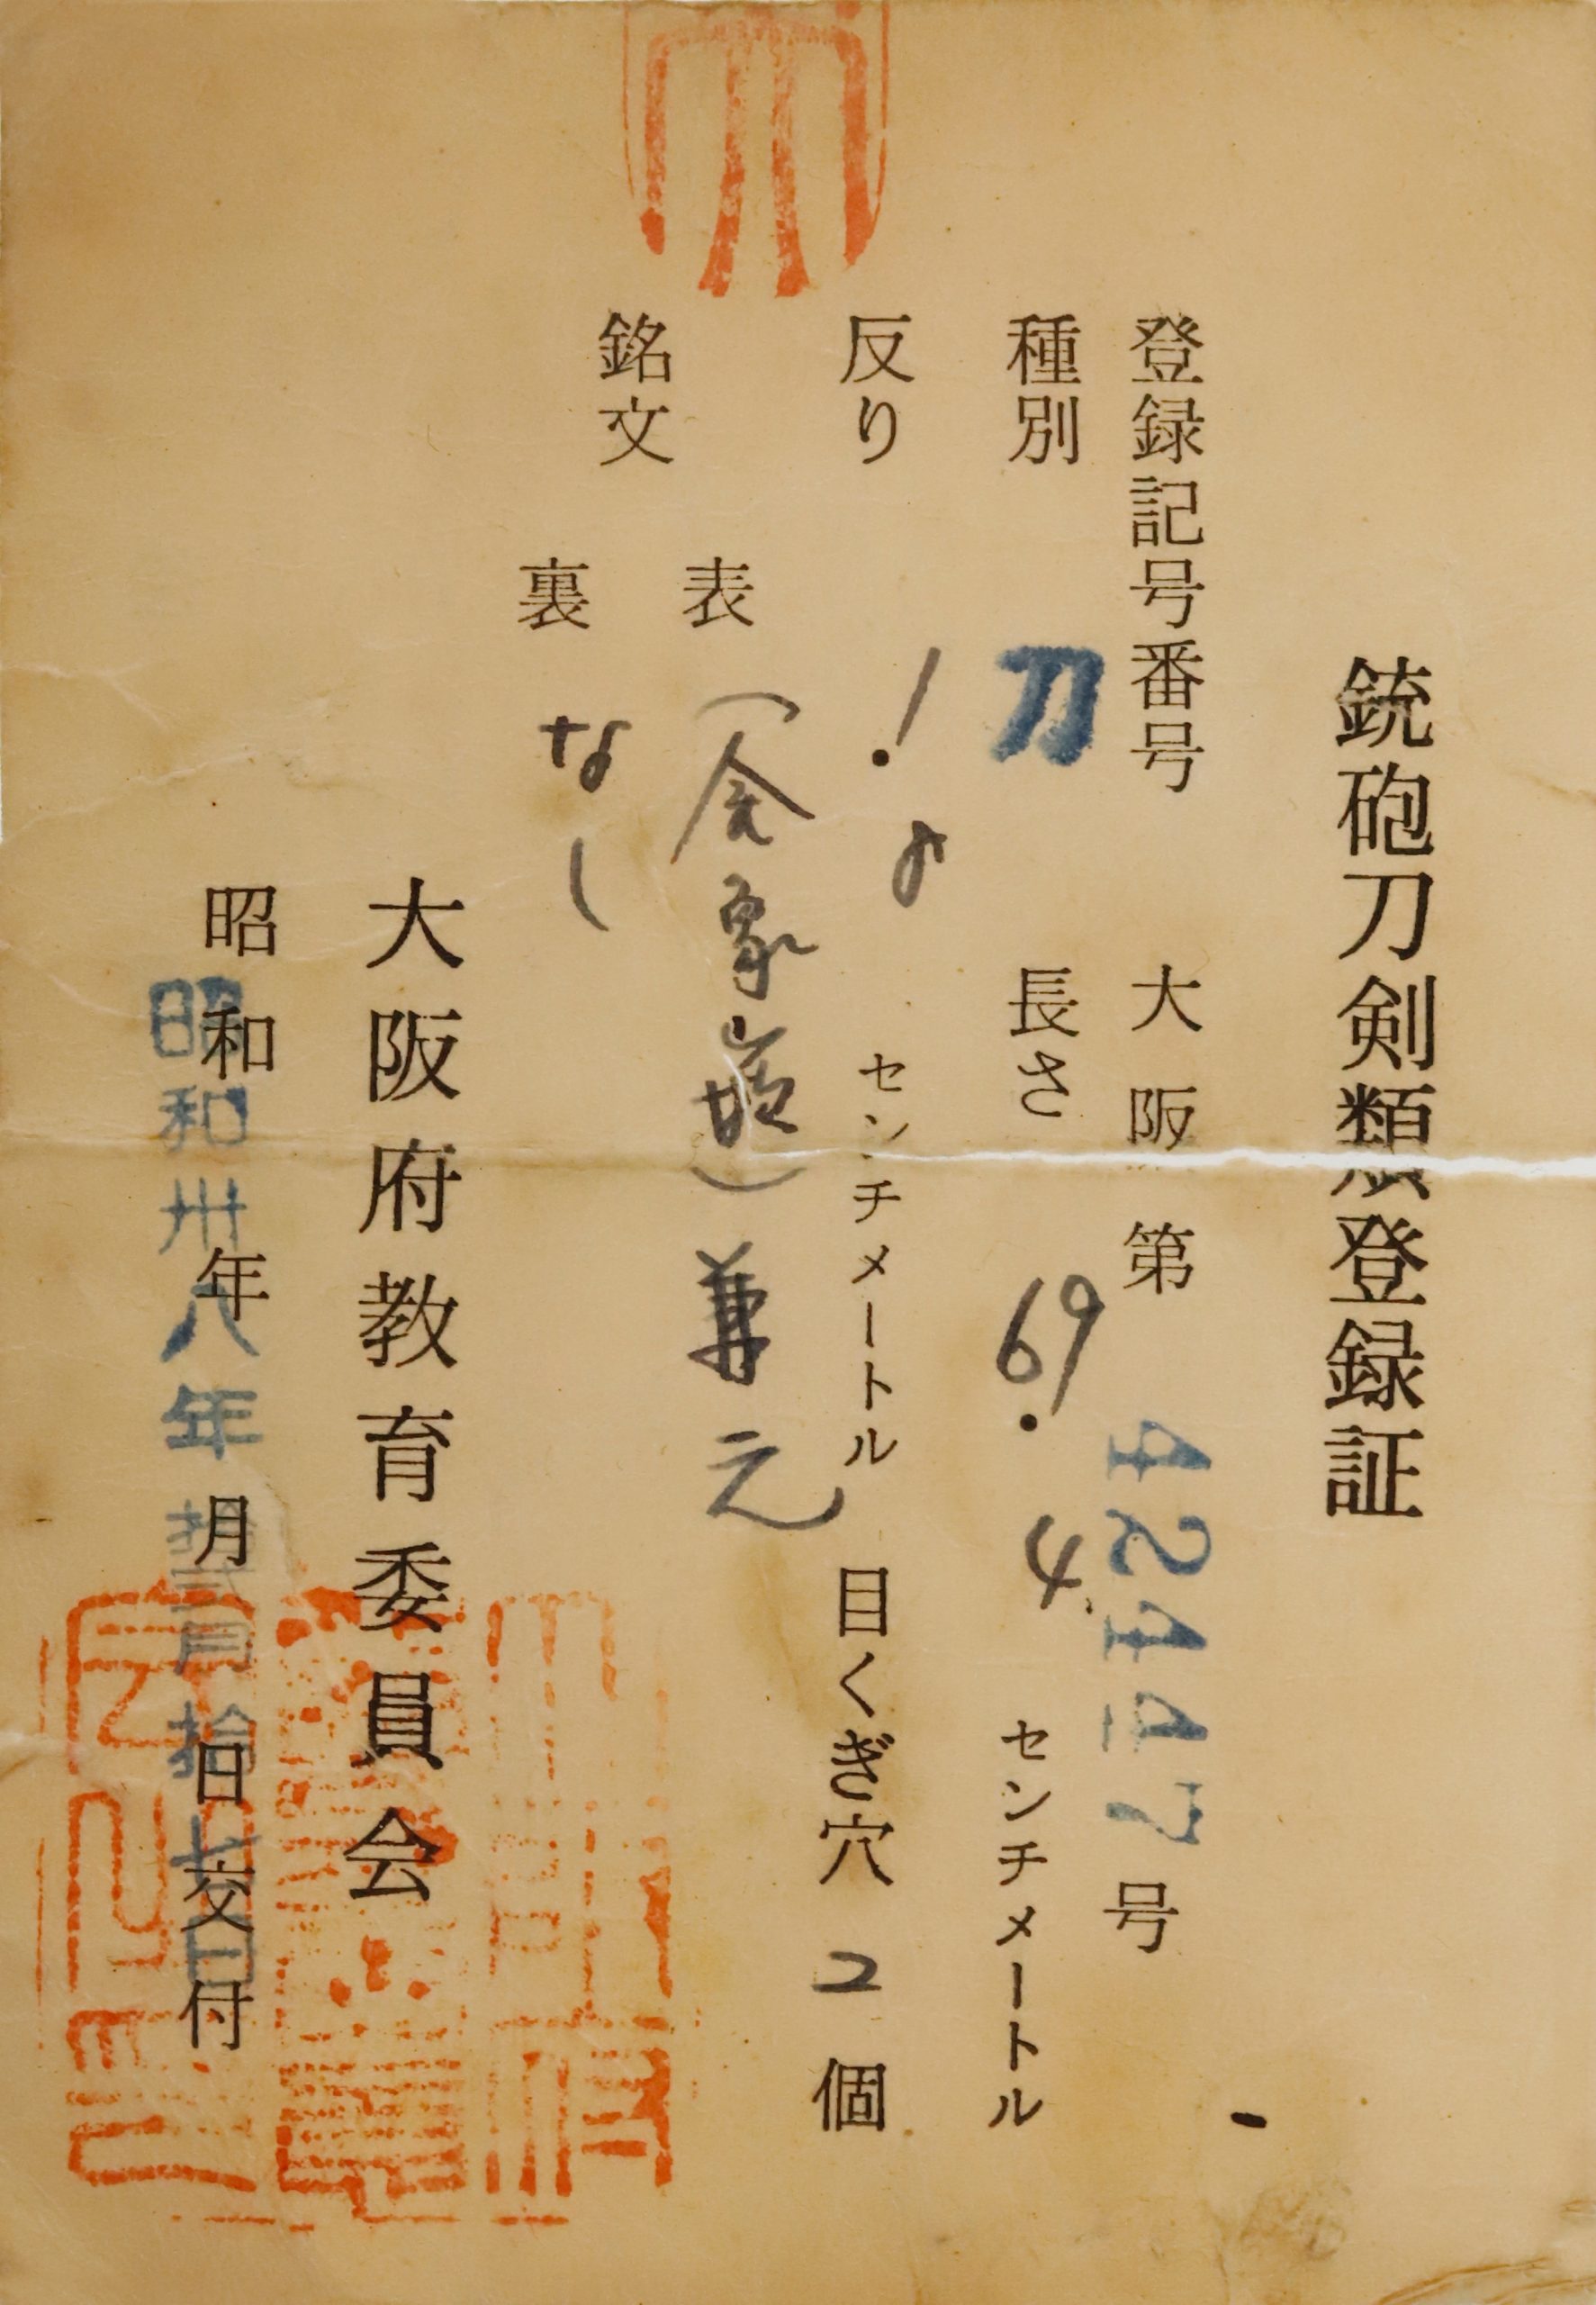 銃砲刀剣類登録証
登録記号番号 大阪 第 42447 号
種別 刀 長さ 69.4 センチメートル
反り 1.8 センチメートル 目くぎ穴 2 個
銘文
表 (金象嵌)兼元
裏 なし
大阪府教育委員会
昭和 年 月 日交付
昭和卅八年拾弐月拾七日